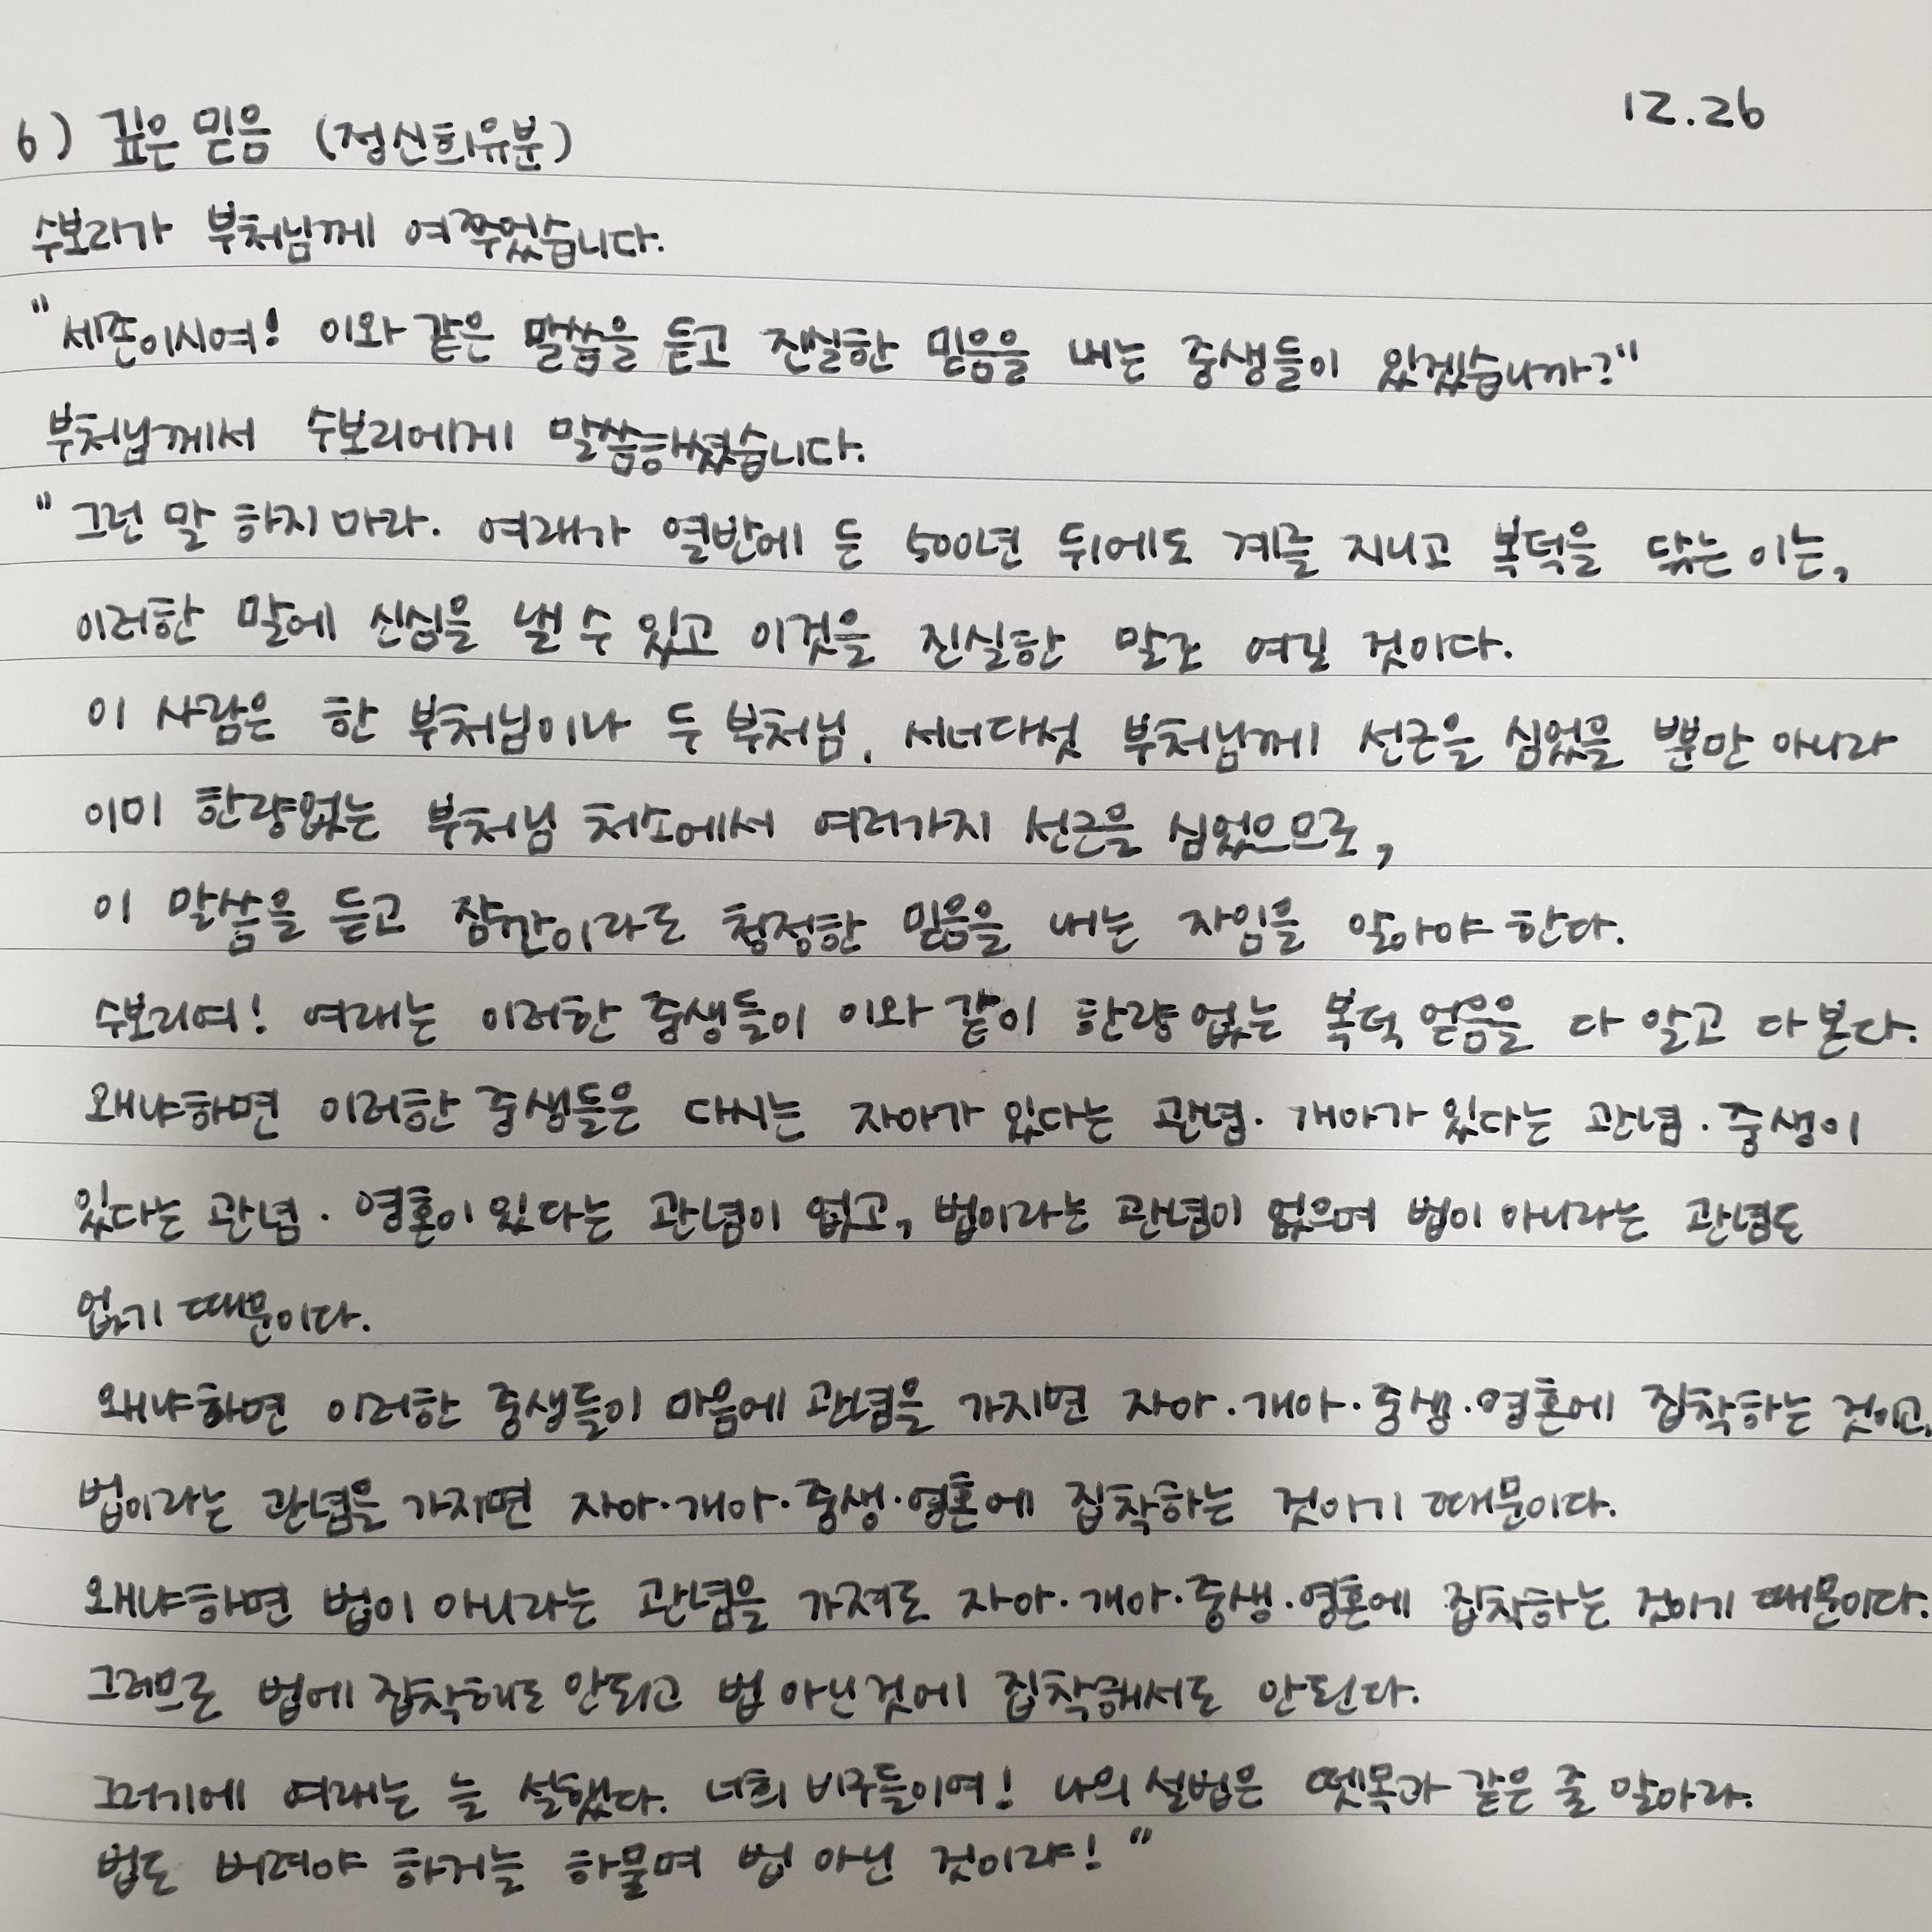 12.26
6) 깊은 믿음 (정신희유분)
수보리가 부처님께 여쭈었습니다.
"세존이시여! 이와 같은 말씀을 듣고 진실한 믿음을 내는 중생들이 있겠습니까?"
부처님께서 수보리에게 말씀하셨습니다.
"그런 말 하지 마라. 여래가 열반에 든 500년 뒤에도 계를 지니고 복덕을 닦는 이는,
이러한 말에 신심을 낼 수 있고 이것을 진실한 말로 여길 것이다.
이 사람은 한 부처님이나 두 부처님, 서너다섯 부처님께 선근을 심었을 뿐만 아니라
이미 한량없는 부처님 처소에서 여러가지 선근을 심었으므로,
이 말씀을 듣고 잠깐이라도 청정한 믿음을 내는 자임을 알아야 한다.
수보리여! 여래는 이러한 중생들이 이와 같이 한량 없는 복덕 얻음을 다 알고 다 본다.
왜냐하면 이러한 중생들은 다시는 자아가 있다는 관념·개아가 있다는 관념·중생이
있다는 관념·영혼이 있다는 관념이 없고, 법이라는 관념이 없으며 법이 아니라는 관념도
없기 때문이다.
왜냐하면 이러한 중생들이 마음에 관념을 가지면 자아·개아·중생·영혼에 집착하는 것이고,
법이라는 관념을 가지면 자아·개아·중생·영혼에 집착하는 것이기 때문이다.
왜냐하면 법이 아니라는 관념을 가져도 자아·개아·중생·영혼에 집착하는 것이기 때문이다.
그러므로 법에 집착해도 안되고 법 아닌것에 집착해서도 안된다.
그러기에 여래는 늘 설했다. 너희 비구들이여! 나의 설법은 뗏목과 같은 줄 알아라.
법도 버려야 하거늘 하물며 법 아닌 것이랴!"